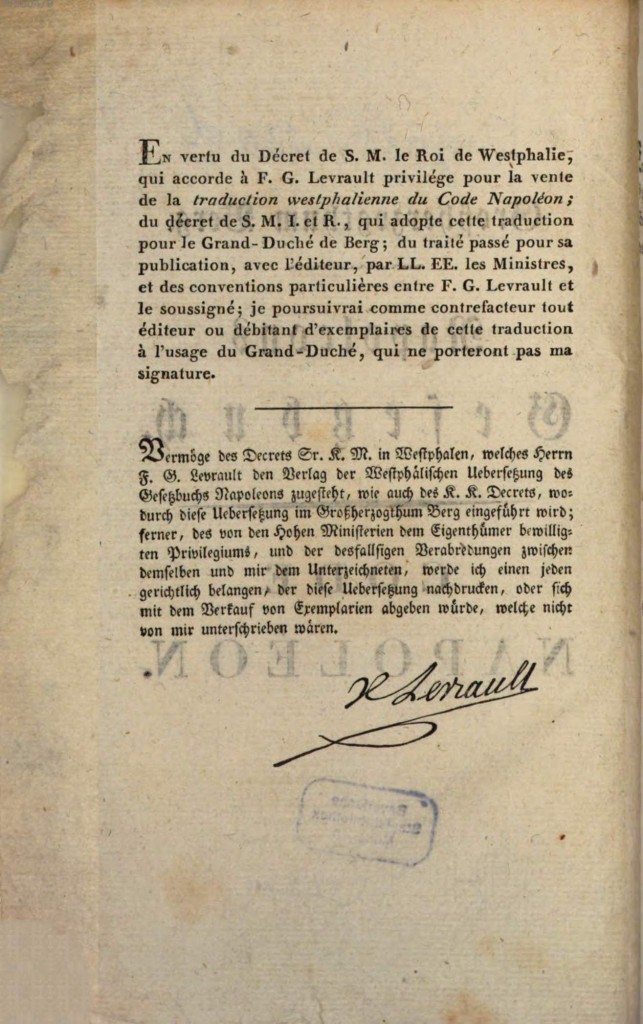 En vertu du Décret de S. M. le Roi de Westphalie,
qui accorde à F. G. Levrault privilége pour la vente
de la traduction westphalienne du Code Napoléon;
du décret de S. M. I. et R., qui adopte cette traduction
pour le Grand-Duché de Berg; du traité passé pour sa
publication, avec l'éditeur, par LL. EE. les Ministres,
et des conventions particulières entre F. G. Levrault et
le soussigné; je poursuivrai comme contrefacteur tout
éditeur ou débitant d'exemplaires de cette traduction
à l'usage du Grand-Duché, qui ne porteront pas ma
signature.
Vermöge des Decrets Sr. K. M. in Westphalen, welches Herrn
F. G. Levrault den Verlag der Westphälischen Uebersetzung des
Gesetzbuchs Napoleons zugesteht, wie auch des K. K. Decrets, wo-
durch diese Uebersetzung im Großherzogthum Berg eingeführt wird;
ferner, des von den Hohen Ministerien dem Eigenthümer bewillig-
ten Privilegiums, und der desfallsigen Verabredungen zwischen
demselben und mir dem Unterzeichneten, werde ich einen jeden
gerichtlich belangen, der diese Uebersetzung nachdrucken, oder sich
mit dem Verkauf von Exemplarien abgeben würde, welche nicht
von mir unterschrieben wären.
Levrault
NAPOLEON.